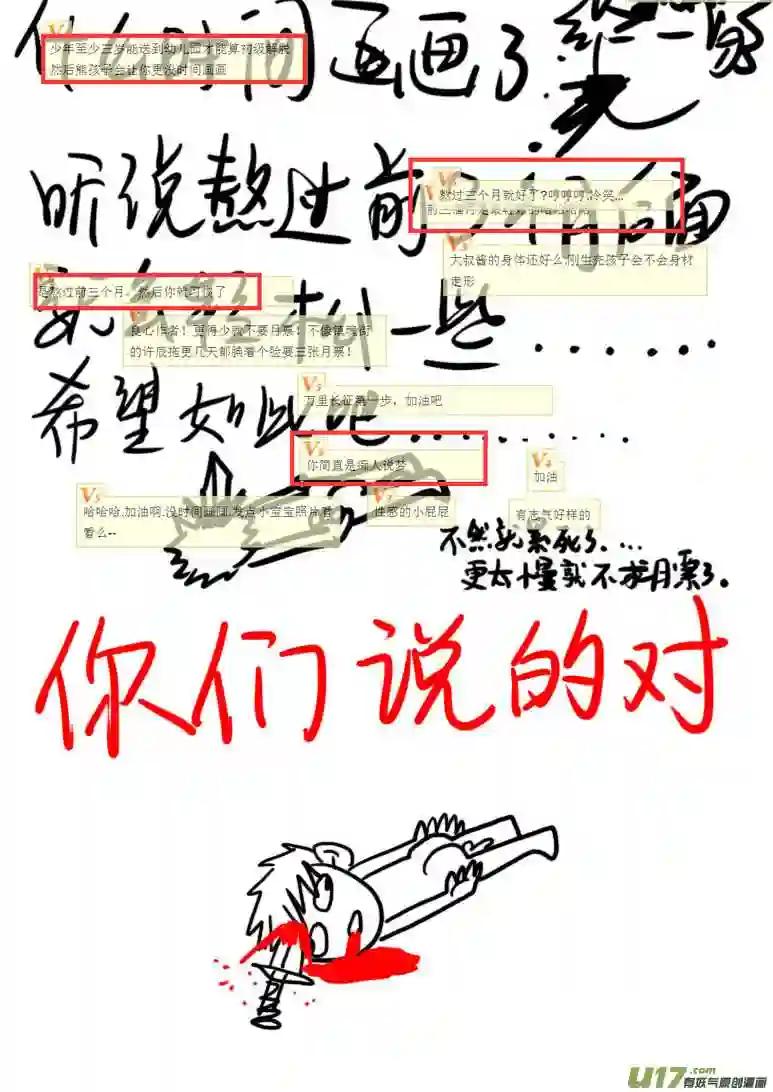 什么时间画画了
少年至少三岁能送到幼儿园才能算初级解脱
然后熊孩子会让你更没时间画画
听说熬过前3个月后面
熬过三个月就好了?哼哼哼,冷笑...
大叔酱的身体还好么,刚生完孩子会不会身材
走形
是熬过前三个月。然后你就习惯了
一些......
良心作者！更得少就不要月票！不像镇魂街
的许辰拖更几天都腆着个脸要三张月票！
希望如此吧..........
万里长征第一步，加油吧
你简直是痴人说梦
加油
哈哈哈,加油啊.没时间画画,发点小宝宝照片看
看么--
性感的小屁屁
有志气好样的
不然就累死了....
更太慢就不求月票了。
你们说的对
U17.com
有妖气原创漫画